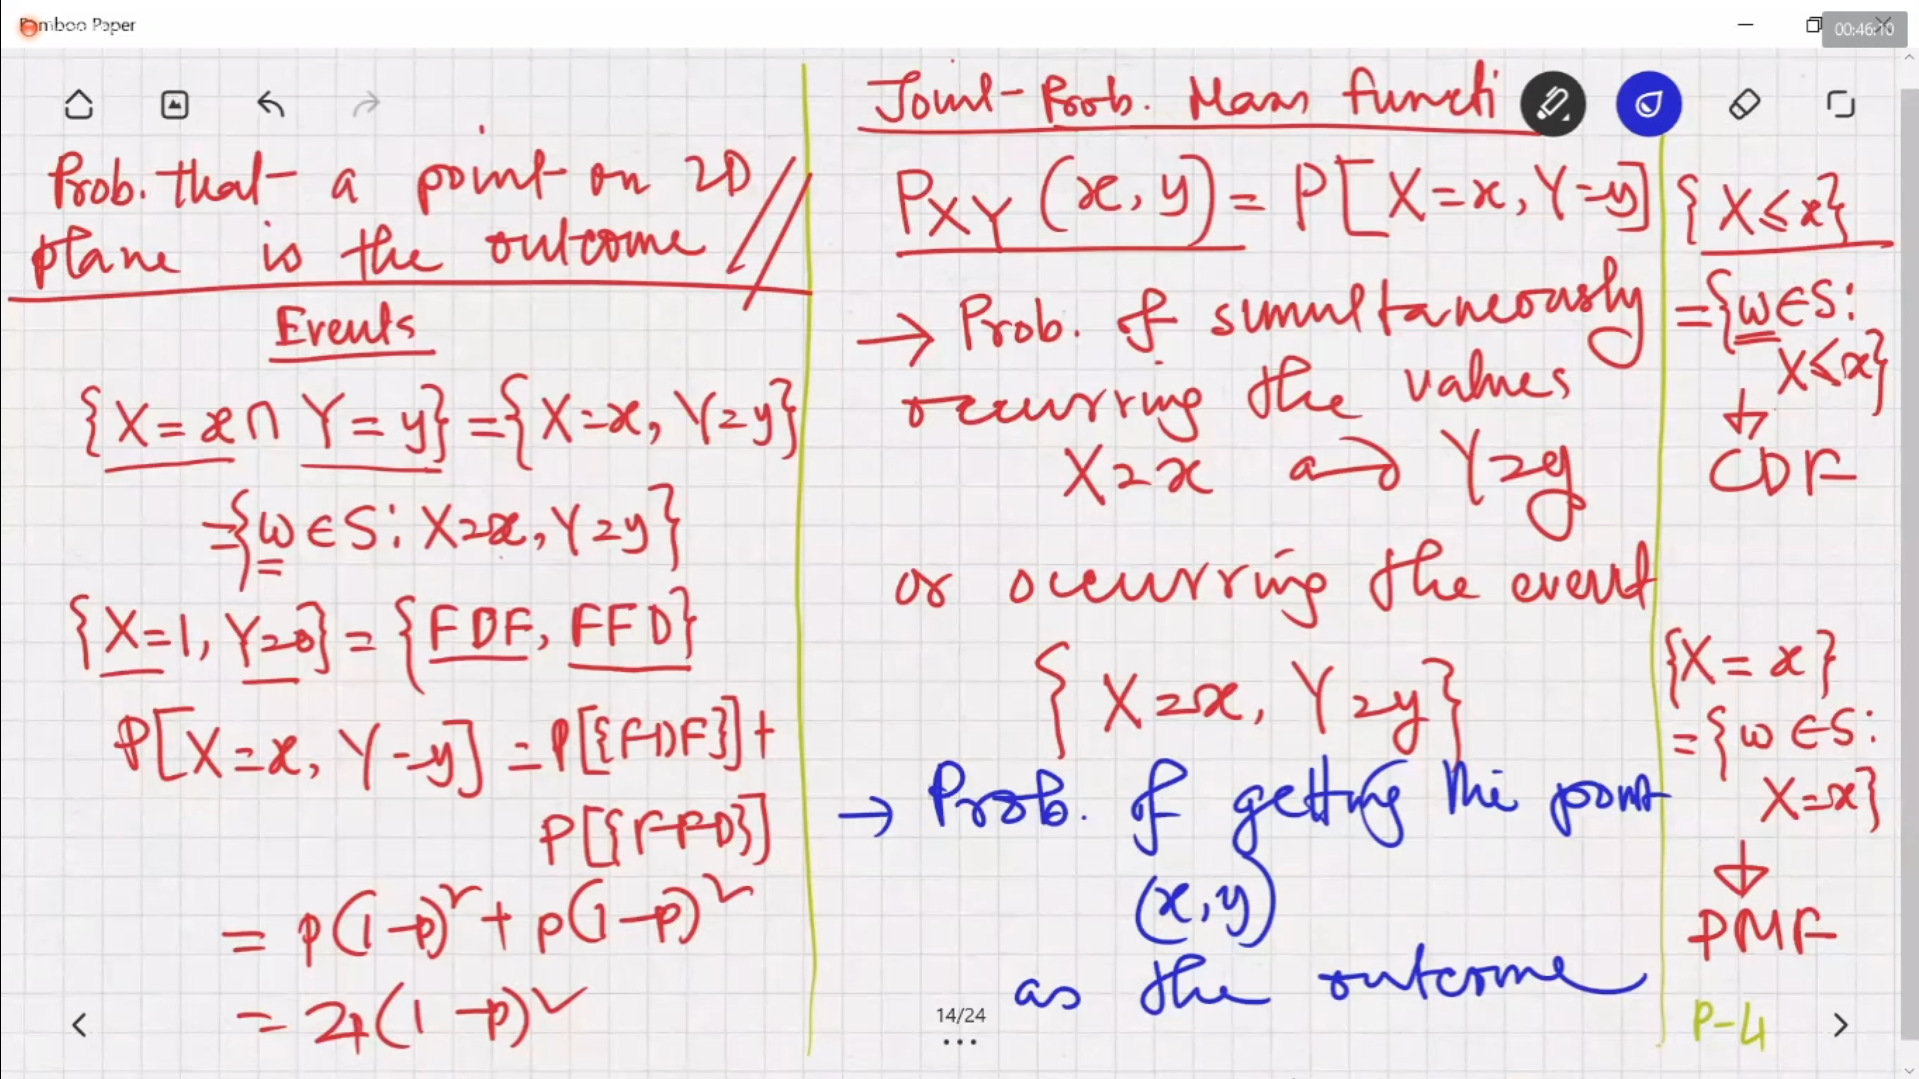 Bamboo Paper
00:46:10
Prob. that a point on 2D
plane is the outcome
Events
{X = x ∩ Y = y} = {X=x, Y=y}
={ω ∈ S: X=x, Y=y}
{X=1, Y=0} = {FDF, FFD}
P[X=x, Y=y] = P[{FDF}] +
P[{FFD}]
= p(1-p)² + p(1-p)²
= 2p(1-p)²
Joint Prob. Mass functi
P_XY (x, y) = P[X=x, Y=y]
→ Prob. of simultaneously
occurring the values
X=x and Y=y
or occurring the event
{X=x, Y=y}
→ Prob. of getting the point
(x, y)
as the outcome
{X≤x}
={ω∈S:
X≤x}
↓
CDF
{X = x}
={ω ∈S:
X=x}
↓
PMF
P-4
14/24